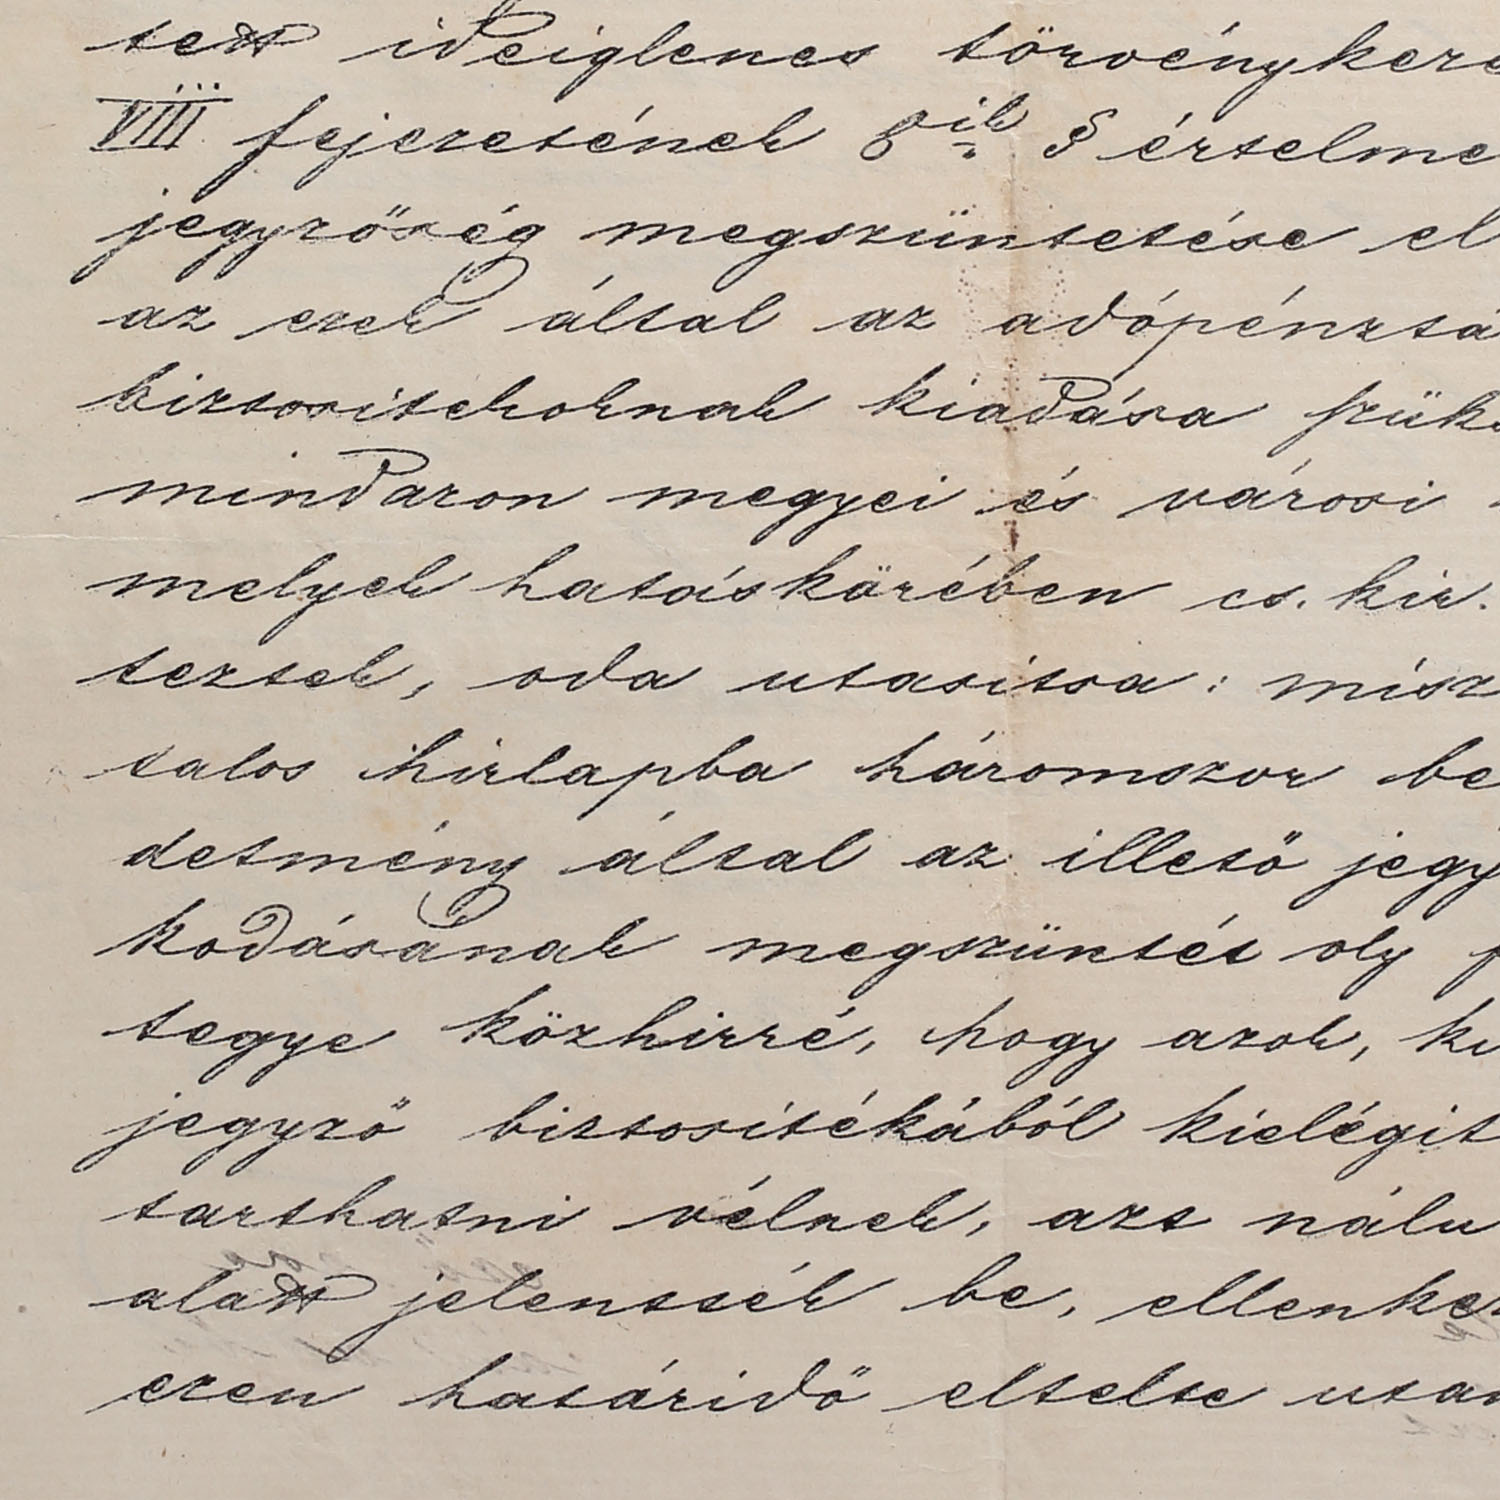 tett ideiglenes törvénykere
VIII fejezetének 8ik § értelme
jegyzőség megszüntetése el
az ezek által az adópénztá
biztositékoknak kiadása szük
mindazon megyei és városi
melyek hatáskörében cs. kir.
teztek, oda utasitva: misz
talos hirlapba háromszor be
detmény által az illető jegy
kodásának megszüntét oly
tegye közhirré, hogy azok, ki
jegyző biztosítékából kielégit
tarthatni vélnek, azt nálu
alatt jelentsék be, ellenkez
ezen határidő eltelte utan